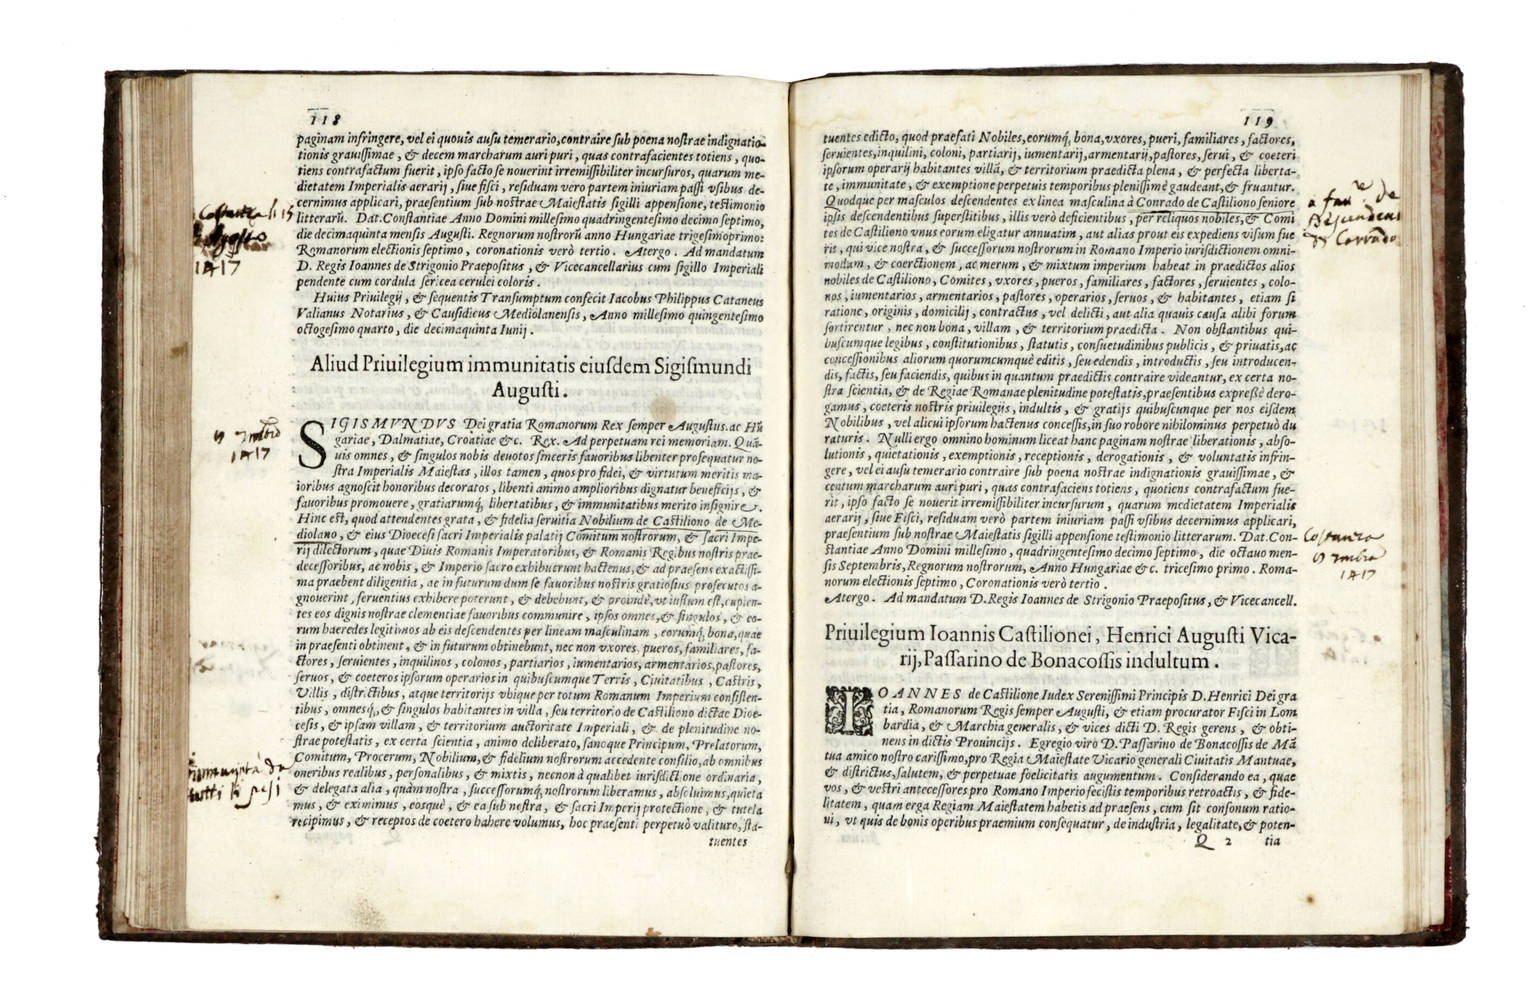 118
paginam infringere, vel ei quouis ausu temerario, contraire sub poena nostrae indignatio-
tionis grauissimae, & decem marcharum auri puri, quas contrafacientes totiens, quo-
tiens contrafactum fuerit, ipso facto se nouerint irremissibiliter incursuros, quarum me-
dietatem Imperialis aerarij, siue fisci, residuam vero partem iniuriam passi vsibus de-
cernimus applicari, praesentium sub nostrae Maiestatis sigilli appensione, testimonio
litterarū. Dat. Constantiae Anno Domini millesimo quadringentesimo decimo septimo,
die decimaquinta mensis Augusti. Regnorum nostrorū anno Hungariae trigesimoprimo:
Romanorum electionis septimo, coronationis verò tertio. Atergo. Ad mandatum
D. Regis Ioannes de Strigonio Praepositus, & Vicecancellarius cum sigillo Imperiali
pendente cum cordula sericea cerulei coloris.
Huius Priuilegij, & sequentis Transumptum confecit Iacobus Philippus Cataneus
Valianus Notarius, & Causidicus Mediolanensis, Anno millesimo quingentesimo
octogesimo quarto, die decimaquinta Iunij.
Aliud Priuilegium immunitatis eiusdem Sigismundi
Augusti.
SIGISMVNDVS Dei gratia Romanorum Rex semper Augustus. ac Hū
gariae, Dalmatiae, Croatiae &c. Rex. Ad perpetuam rei memoriam. Quā-
uis omnes, & singulos nobis deuotos sinceris fauoribus libenter prosequatur no-
stra Imperialis Maiestas, illos tamen, quos pro fidei, & virtutum meritis ma-
ioribus agnoscit honoribus decoratos, libenti animo amplioribus dignatur beneficijs, &
fauoribus promouere, gratiarumq́, libertatibus, & immunitatibus merito insignire.
Hinc est, quod attendentes grata, & fidelia seruitia Nobilium de Castiliono de Me-
diolano, & eius Dioecesi sacri Imperialis palatij Comitum nostrorum, & sacri Impe-
rij dilectorum, quae Diuis Romanis Imperatoribus, & Romanis Regibus nostris prae-
decessoribus, ac nobis, & Imperio sacro exhibuerunt hactenus, & ad praesens exactissi-
ma praebent diligentia, ac in futurum dum se fauoribus nostris gratiosius prosecutos a-
gnouerint, seruentius exhibere poterunt, & debebunt, & proindè, vt iustum est, cupien-
tes eos dignis nostrae clementiae fauoribus communire, ipsos omnes, & singulos, & eo-
rum haeredes legitimos ab eis descendentes per lineam masculinam, eorumq́, bona, quae
in praesenti obtinent, & in futurum obtinebunt, nec non vxores. pueros, familiares, fa-
ctores, seruientes, inquilinos, colonos, partiarios, iumentarios, armentarios, pastores,
seruos, & coeteros ipsorum operarios in quibuscumque Terris, Ciuitatibus, Castris,
Villis, districtibus, atque territorijs vbique per totum Romanum Imperium consisten-
tibus, omnesq́, & singulos habitantes in villa, seu territorio de Castiliono dictae Dioe-
cesis, & ipsam villam, & territorium auctoritate Imperiali, & de plenitudine no-
strae potestatis, ex certa scientia, animo deliberato, sanoque Principum, Prelatorum,
Comitum, Procerum, Nobilium, & fidelium nostrorum accedente consilio, ab omnibus
oneribus realibus, personalibus, & mixtis, necnon à qualibet iurisdictione ordinaria,
& delegata alia, quàm nostra, successorumq́, nostrorum liberamus, absoluimus, quieta
mus, & eximimus, eosquè, & ea sub nostra, & sacri Imperij protectione, & tutela
recipimus, & receptos de coetero habere volumus, hoc praesenti perpetuò valituro, sta-
tuentes
Costanza li 15
Agosto
1417
1417
immunità da
tutti li pesi
119
tuentes edicto, quod praefati Nobiles, eorumq́, bona, vxores, pueri, familiares, factores,
seruientes, inquilini, coloni, partiarij, iumentarij, armentarij, pastores, serui, & coeteri
ipsorum operarij habitantes villā, & territorium praedicta plena, & perfecta liberta-
te, immunitate, & exemptione perpetuis temporibus plenissimè gaudeant, & fruantur.
Quodque per masculos descendentes ex linea masculina à Conrado de Castiliono seniore
ipsis descendentibus superstitibus, illis verò deficientibus, per reliquos nobiles, & Comi
tes de Castiliono vnus eorum eligatur annuatim, aut alias prout eis expediens visum fue
rit, qui vice nostra, & successorum nostrorum in Romano Imperio iurisdictionem omni-
modam, & coerctionem, ac merum, & mixtum imperium habeat in praedictos alios
nobiles de Castiliono, Comites, vxores, pueros, familiares, factores, seruientes, colo-
nos, iumentarios, armentarios, pastores, operarios, seruos, & habitantes, etiam si
ratione, originis, domicilij, contractus, vel delicti, aut alia quauis causa alibi forum
sortirentur, nec non bona, villam, & territorium praedicta. Non obstantibus qui-
buscumque legibus, constitutionibus, statutis, consuetudinibus publicis, & priuatis, ac
concessionibus aliorum quorumcumquè editis, seu edendis, introductis, seu introducen-
dis, factis, seu faciendis, quibus in quantum praedictis contraire videantur, ex certa no-
stra scientia, & de Regiae Romanae plenitudine potestatis, praesentibus expressè dero-
gamus, coeteris nostris priuilegijs, indultis, & gratijs quibuscunque per nos eisdem
Nobilibus, vel alicui ipsorum hactenus concessis, in suo robore nihilominus perpetuò du
raturis. Nulli ergo omnino hominum liceat hanc paginam nostrae liberationis, abso-
lutionis, quietationis, exemptionis, receptionis, derogationis, & voluntatis infrin-
gere, vel ei ausu temerario contraire sub poena nostrae indignationis grauissimae, &
centum marcharum auri puri, quas contrafaciens totiens, quotiens contrafactum fue-
rit, ipso facto se nouerit irremissibiliter incursurum, quarum medietatem Imperialis
aerarij, siue Fisci, residuam verò partem iniuriam passi vsibus decernimus applicari,
praesentium sub nostrae Maiestatis sigilli appensione testimonio litterarum. Dat. Con-
stantiae Anno Domini millesimo, quadringentesimo decimo septimo, die octauo men-
sis Septembris, Regnorum nostrorum, Anno Hungariae &c. tricesimo primo. Roma-
norum electionis septimo, Coronationis verò tertio.
Atergo. Ad mandatum D. Regis Ioannes de Strigonio Praepositus, & Vicecancell.
Priuilegium Ioannis Castilionei, Henrici Augusti Vica-
rij, Passarino de Bonacossis indultum.
IOANNES de Castilione Iudex Serenissimi Principis D. Henrici Dei gra
tia, Romanorum Regis semper Augusti, & etiam procurator Fisci in Lom
bardia, & Marchia generalis, & vices dicti D. Regis gerens, & obti-
nens in dictis Prouincijs. Egregio viro D. Passarino de Bonacossis de Mā
tua amico nostro carissimo, pro Regia Maiestate Vicario generali Ciuitatis Mantuae,
& districtus, salutem, & perpetuae foelicitatis augumentum. Considerando ea, quae
vos, & vestri antecessores pro Romano Imperio fecistis temporibus retroactis, & fide-
litatem, quam erga Regiam Maiestatem habetis ad praesens, cum sit consonum ratio-
ni, vt quis de bonis operibus praemium consequatur, de industria, legalitate, & poten-
Q 2 tia
de
Descendens
di Corrado
Costanza
1417